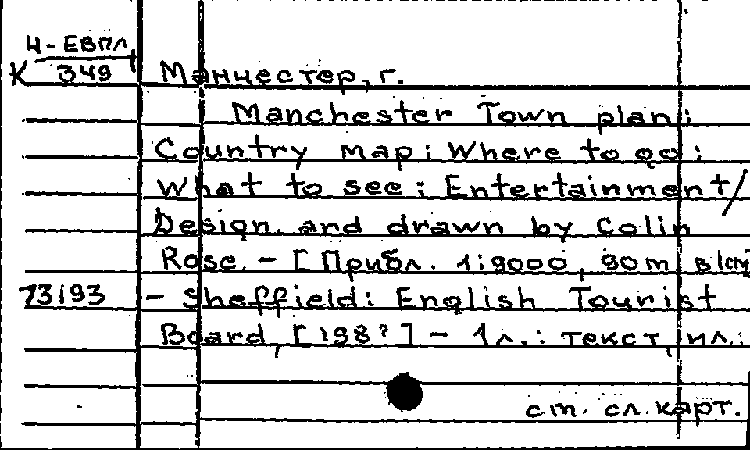 Ч-ЕВПЛ
К 349 Манчестер, г.
Manchester Town plan;
Country map; Where to go;
What to see; Entertainment/
Design. and drawn by Colin
Rose. - [Прибл. 1:9000, 90m в 1см]
73193 - Sheffield: English Tourist
Board, [198?] - 1л.: текст, ил.;
см. сл. карт.